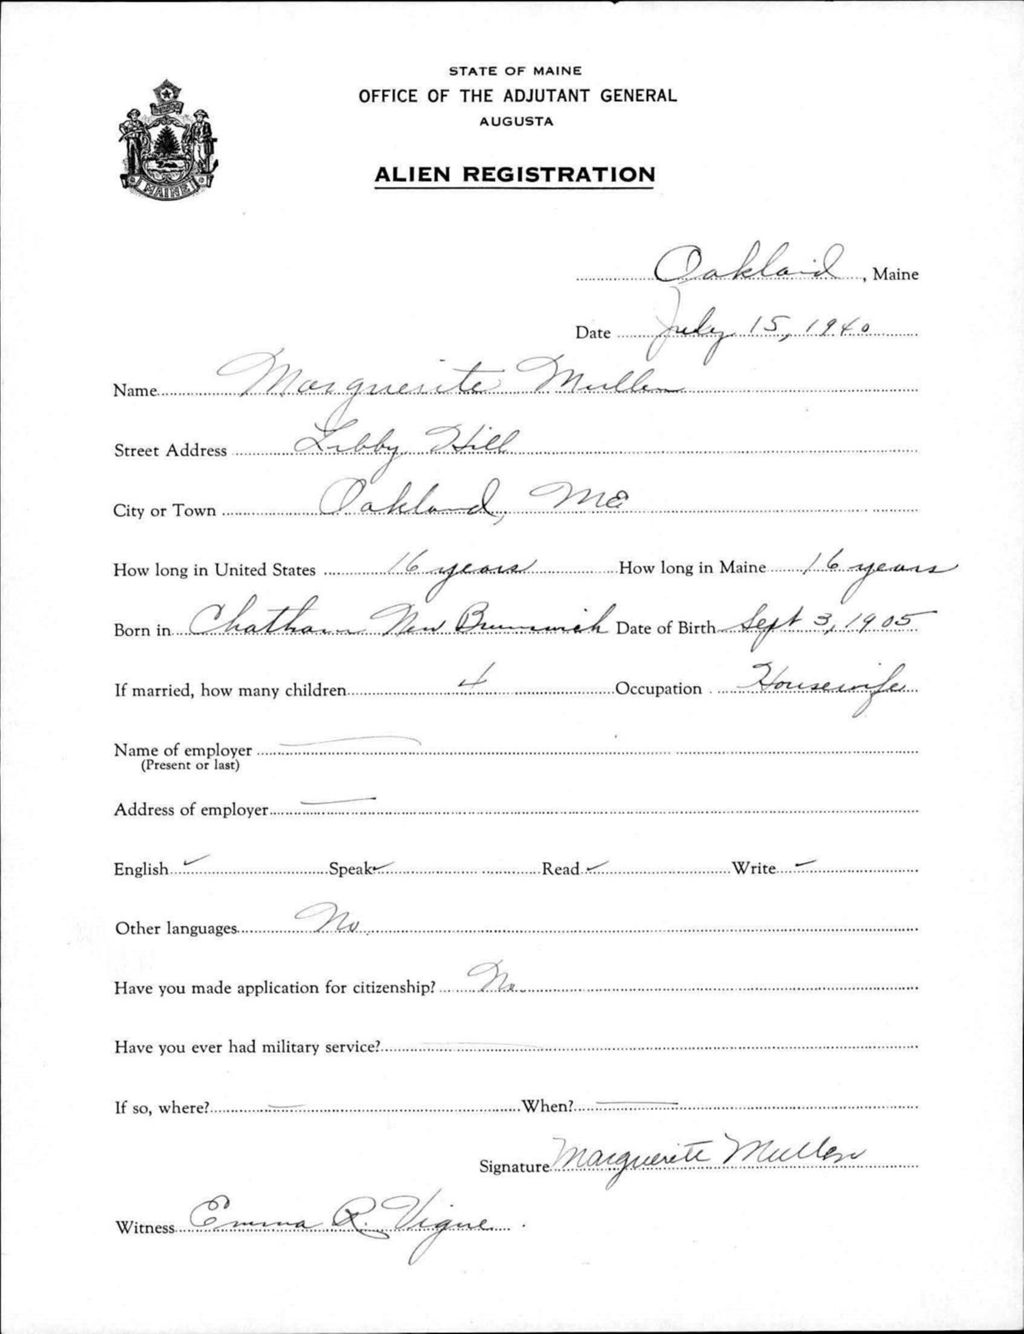 STATE OF MAINE
OFFICE OF THE ADJUTANT GENERAL
AUGUSTA
ALIEN REGISTRATION
MAINE
Oakland, Maine
Date July 15, 1940
Name Marguerite Mullen
Street Address Libby Hill
City or Town Oakland, ME
How long in United States 16 years How long in Maine 16 years
Born in Chatham New Brunswick Date of Birth Sept 3, 1905
If married, how many children 4 Occupation Housewife
Name of employer —
(Present or last)
Address of employer —
English ✓ Speak ✓ Read ✓ Write ✓
Other languages No
Have you made application for citizenship? No
Have you ever had military service? —
If so, where? — When? —
Signature Marguerite Mullen
Witness Emma R. Vigue